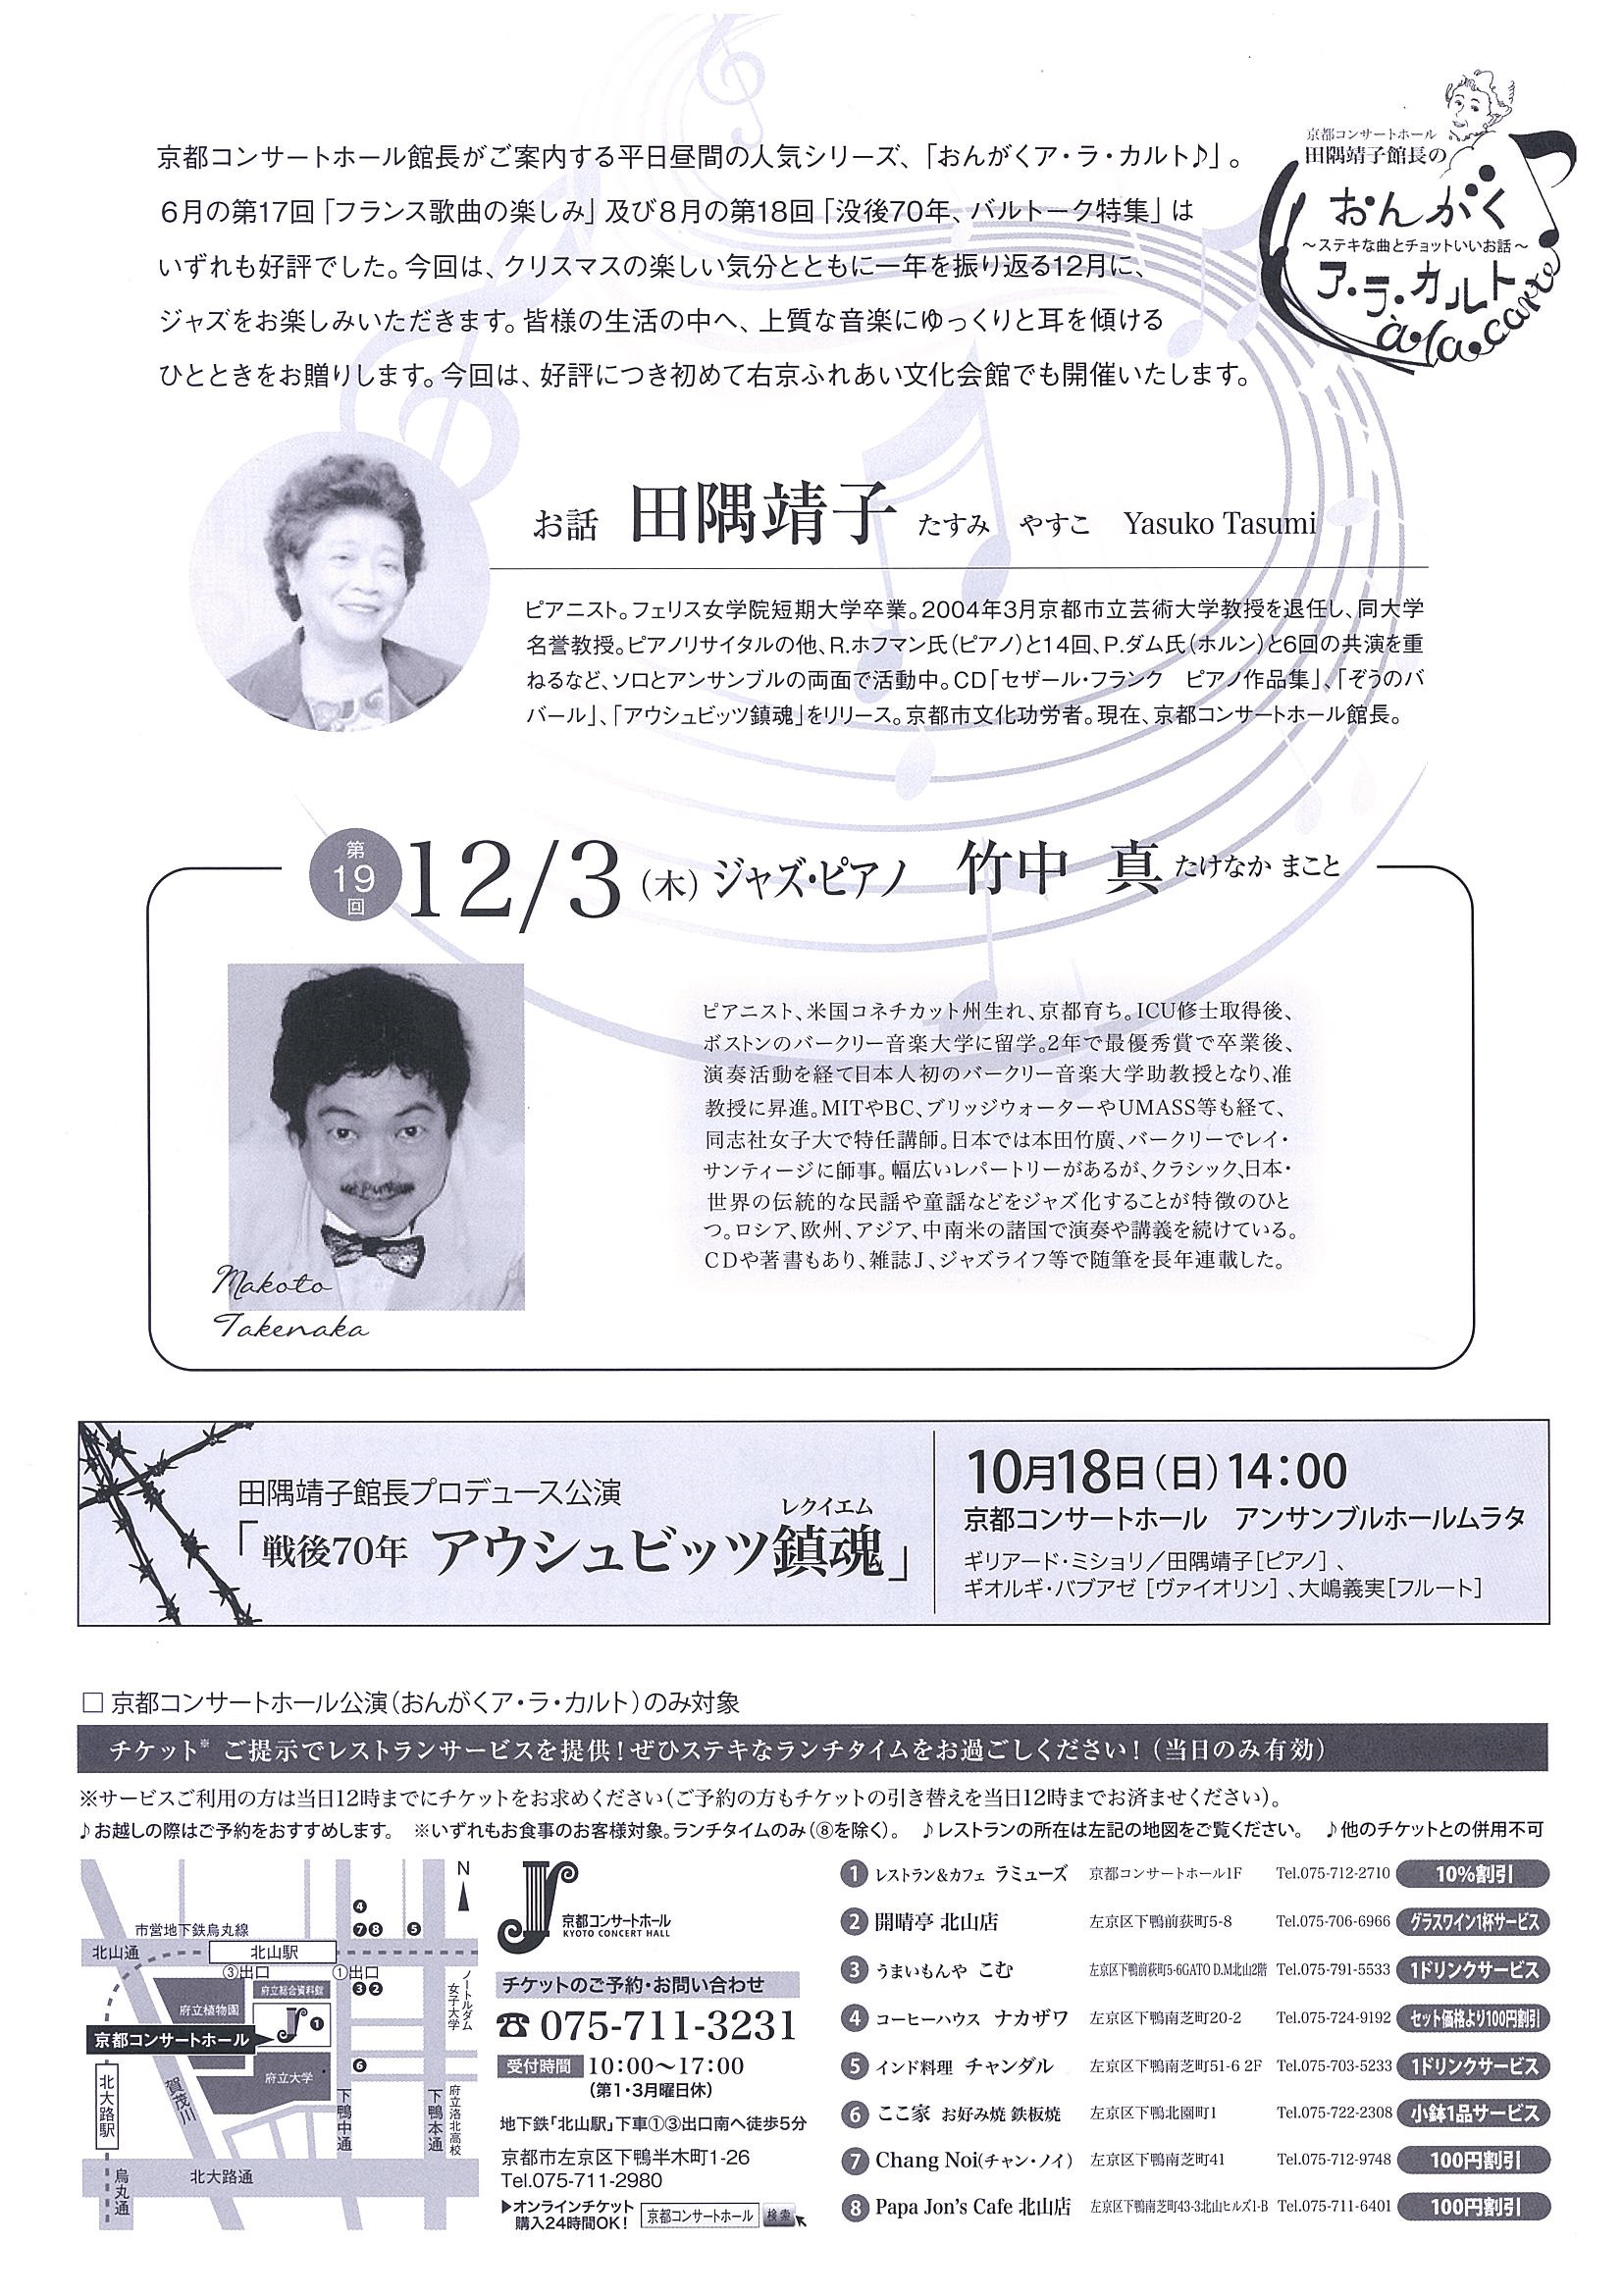 京都コンサートホール館長がご案内する平日昼間の人気シリーズ、「おんがくア・ラ・カルト♪」。
6月の第17回「フランス歌曲の楽しみ」及び8月の第18回「没後70年、バルトーク特集」は
いずれも好評でした。今回は、クリスマスの楽しい気分とともに一年を振り返る12月に、
ジャズをお楽しみいただきます。皆様の生活の中へ、上質な音楽にゆっくりと耳を傾ける
ひとときをお贈りします。今回は、好評につき初めて右京ふれあい文化会館でも開催いたします。
京都コンサートホール
田隅靖子館長の
おんがく
～ステキな曲とチョットいいお話～
ア・ラ・カルト
à la carte
お話 田隅靖子 たすみ やすこ Yasuko Tasumi
ピアニスト。フェリス女学院短期大学卒業。2004年3月京都市立芸術大学教授を退任し、同大学
名誉教授。ピアノリサイタルの他、R.ホフマン氏（ピアノ）と14回、P.ダム氏（ホルン）と6回の共演を重
ねるなど、ソロとアンサンブルの両面で活動中。CD「セザール・フランク ピアノ作品集」、「ぞうのバ
バール」、「アウシュビッツ鎮魂」をリリース。京都市文化功労者。現在、京都コンサートホール館長。
第19回 12/3（木）ジャズ・ピアノ 竹中 真 たけなか まこと
ピアニスト、米国コネチカット州生れ、京都育ち。ICU修士取得後、
ボストンのバークリー音楽大学に留学。2年で最優秀賞で卒業後、
演奏活動を経て日本人初のバークリー音楽大学助教授となり、准
教授に昇進。MITやBC、ブリッジウォーターやUMASS等も経て、
同志社女子大で特任講師。日本では本田竹廣、バークリーでレイ・
サンティージに師事。幅広いレパートリーがあるが、クラシック、日本・
世界の伝統的な民謡や童謡などをジャズ化することが特徴のひと
つ。ロシア、欧州、アジア、中南米の諸国で演奏や講義を続けている。
CDや著書もあり、雑誌J、ジャズライフ等で随筆を長年連載した。
Makoto
Takenaka
田隅靖子館長プロデュース公演
レクイエム
「戦後70年 アウシュビッツ鎮魂」
10月18日（日）14：00
京都コンサートホール アンサンブルホールムラタ
ギリアード・ミショリ／田隅靖子［ピアノ］、
ギオルギ・バブアゼ［ヴァイオリン］、大嶋義実［フルート］
□ 京都コンサートホール公演（おんがくア・ラ・カルト）のみ対象
チケット※ ご提示でレストランサービスを提供！ぜひステキなランチタイムをお過ごしください！（当日のみ有効）
※サービスご利用の方は当日12時までにチケットをお求めください（ご予約の方もチケットの引き替えを当日12時までお済ませください）。
♪お越しの際はご予約をおすすめします。 ※いずれもお食事のお客様対象。ランチタイムのみ（⑧を除く）。 ♪レストランの所在は左記の地図をご覧ください。 ♪他のチケットとの併用不可
N
市営地下鉄烏丸線
北山通
北山駅
③出口
①出口
❹
❼❽
❺
❸❷
❶
❻
府立総合資料館
府立植物園
京都コンサートホール
府立大学
ノートルダム女子大学
北大路駅
賀茂川
下鴨中通
下鴨本通
府立洛北高校
烏丸通
北大路通
京都コンサートホール
KYOTO CONCERT HALL
チケットのご予約・お問い合わせ
☎ 075-711-3231
受付時間 10：00～17：00
（第1・3月曜日休）
地下鉄「北山駅」下車①③出口南へ徒歩5分
京都市左京区下鴨半木町1-26
Tel.075-711-2980
▶オンラインチケット
購入24時間OK！
京都コンサートホール 検索
❶ レストラン＆カフェ ラミューズ 京都コンサートホール1F Tel.075-712-2710 10%割引
❷ 開晴亭 北山店 左京区下鴨前萩町5-8 Tel.075-706-6966 グラスワイン1杯サービス
❸ うまいもんや こむ 左京区下鴨前萩町5-6GATO D.M北山2階 Tel.075-791-5533 1ドリンクサービス
❹ コーヒーハウス ナカザワ 左京区下鴨南芝町20-2 Tel.075-724-9192 セット価格より100円割引
❺ インド料理 チャンダル 左京区下鴨南芝町51-6 2F Tel.075-703-5233 1ドリンクサービス
❻ ここ家 お好み焼 鉄板焼 左京区下鴨北園町1 Tel.075-722-2308 小鉢1品サービス
❼ Chang Noi（チャン・ノイ） 左京区下鴨南芝町41 Tel.075-712-9748 100円割引
❽ Papa Jon's Cafe 北山店 左京区下鴨南芝町43-3北山ヒルズ1-B Tel.075-711-6401 100円割引